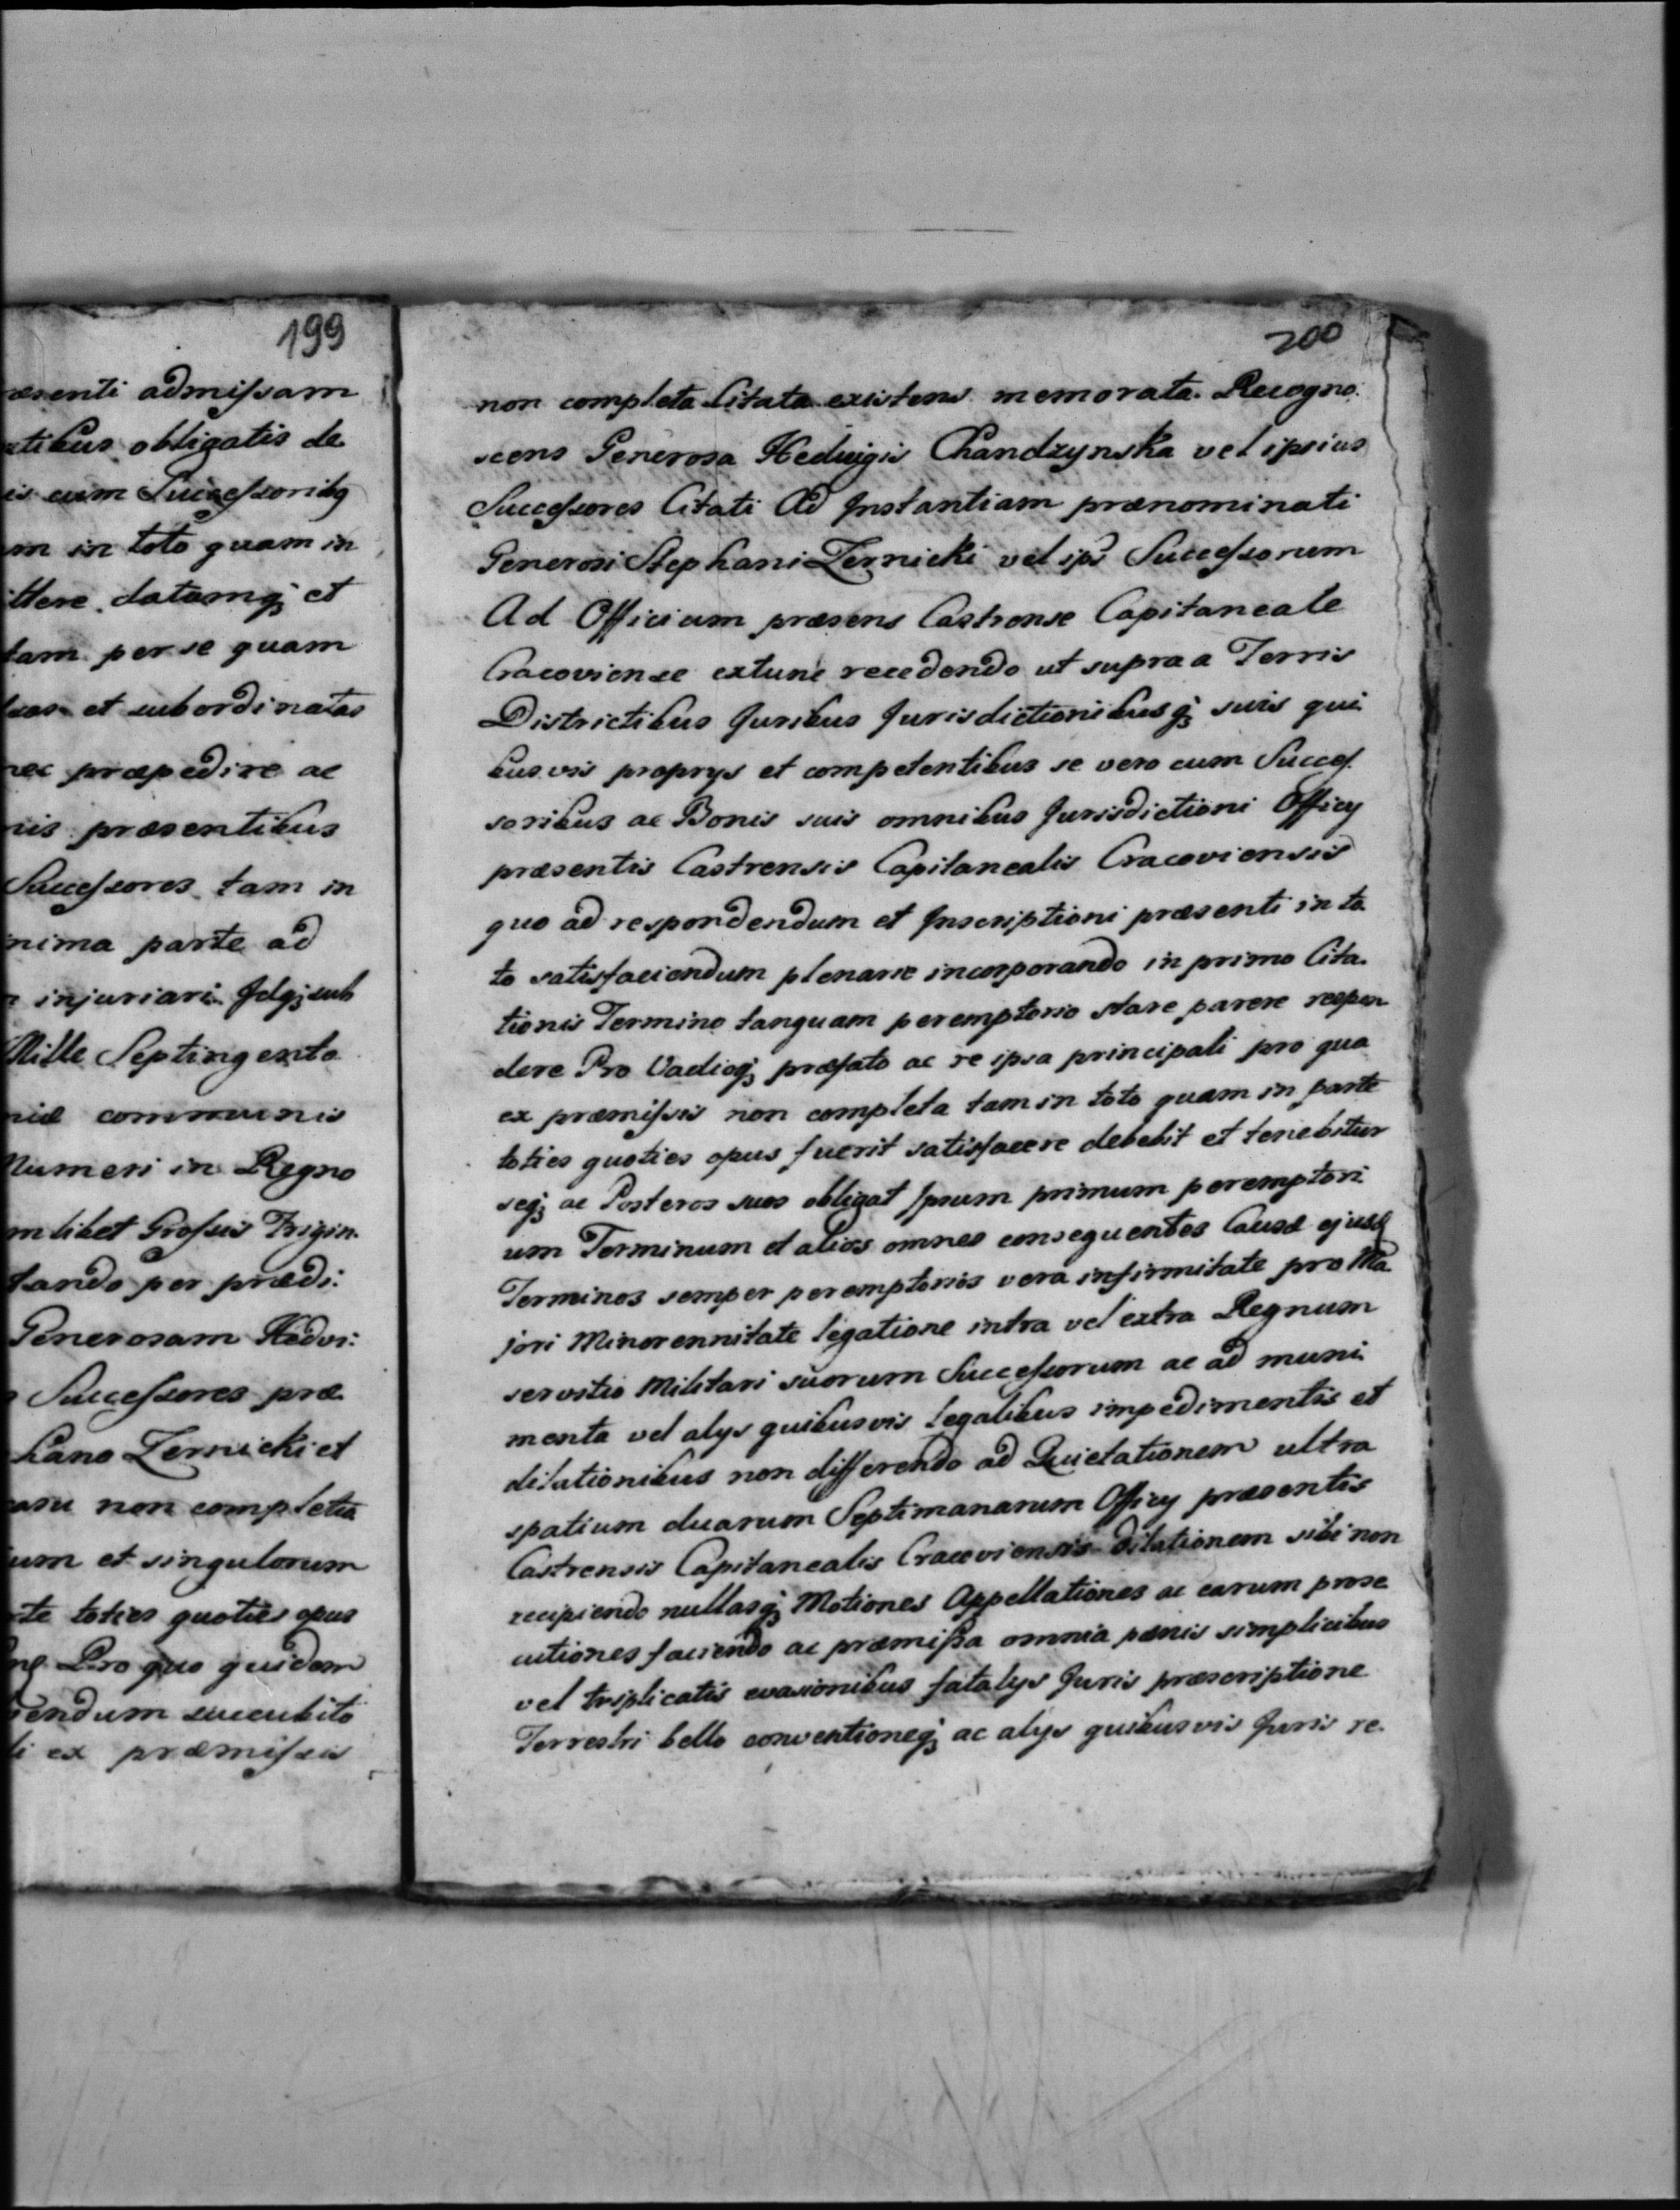 199
æsenti admiſsam
tibus obligatis de
is cum Succeſsoribq
m in toto quam in
ittere datamq; et
tam per se quam
sas et subordinatas
nec præpedire ac
nis præsentibus
Succeſsores tam in
nima parte ad
injuriari Idq; sub
Mille Septingenta
niæ communis
Numeri in Regno
mlibet Groſsis Trigin.
tando per prædi:
Generosam Hedvi:
Succeſsores præ
hano Zernicki et
casu non completis
ium et singulorum
te toties quoties opus
Pro quo quidem
endum succubito
li ex præmiſsis
200
non completa Citata existens memorata Recogno:
scens Generosa Hedvigis Chandzynska vel ipsius
Succeſsores Citati Ad Instantiam prænominati
Generosi Stephani Zernicki vel ips Succeſsorum
Ad Officium præsens Castrense Capitaneale
Cracoviense extunc recedendo ut supra a Terris
Districtibus Juribus Jurisdictionibusq; suis qui
busvis proprys et competentibus se vero cum Succeſ
soribus ac Bonis suis omnibus Jurisdictioni Officy
præsentis Castrensis Capitanealis Cracoviensis
quo ad respondendum et Inscriptioni præsenti in to
to satisfaciendum plenarie incorporando in primo Cita
tionis Termino tanquam peremptorio stare parere respon
dere Pro Vadioq; præfato ac re ipsa principali pro qua
ex præmiſsis non completa tam in toto quam in parte
toties quoties opus fuerit satisfacere debebit et tenebitur
seq; ac Posteros suos obligat Ipsum primum peremptori
um Terminum et alios omnes consequentes Causæ ejusq
Terminos semper peremptorios vera infirmitate pro Ma
jori Minorennitate legatione intra vel extra Regnum
servitio Militari suorum Succeſsorum ac ad muni
menta vel alys quibusvis legalibus impedimentis et
dilationibus non differendo ad Quietationem ultra
spatium duarum Septimanarum Officy præsentis
Castrensis Capitanealis Cracoviensis dilationem sibi non
recipiendo nullasq; Motiones Appellationes ac earum prose
cutiones faciendo ac præmiſsa omnia pænis simplicibus
vel triplicatis evasionibus fatalys Juris præscriptione
Terrestri bello conventioneq; ac alys quibusvis Juris re.